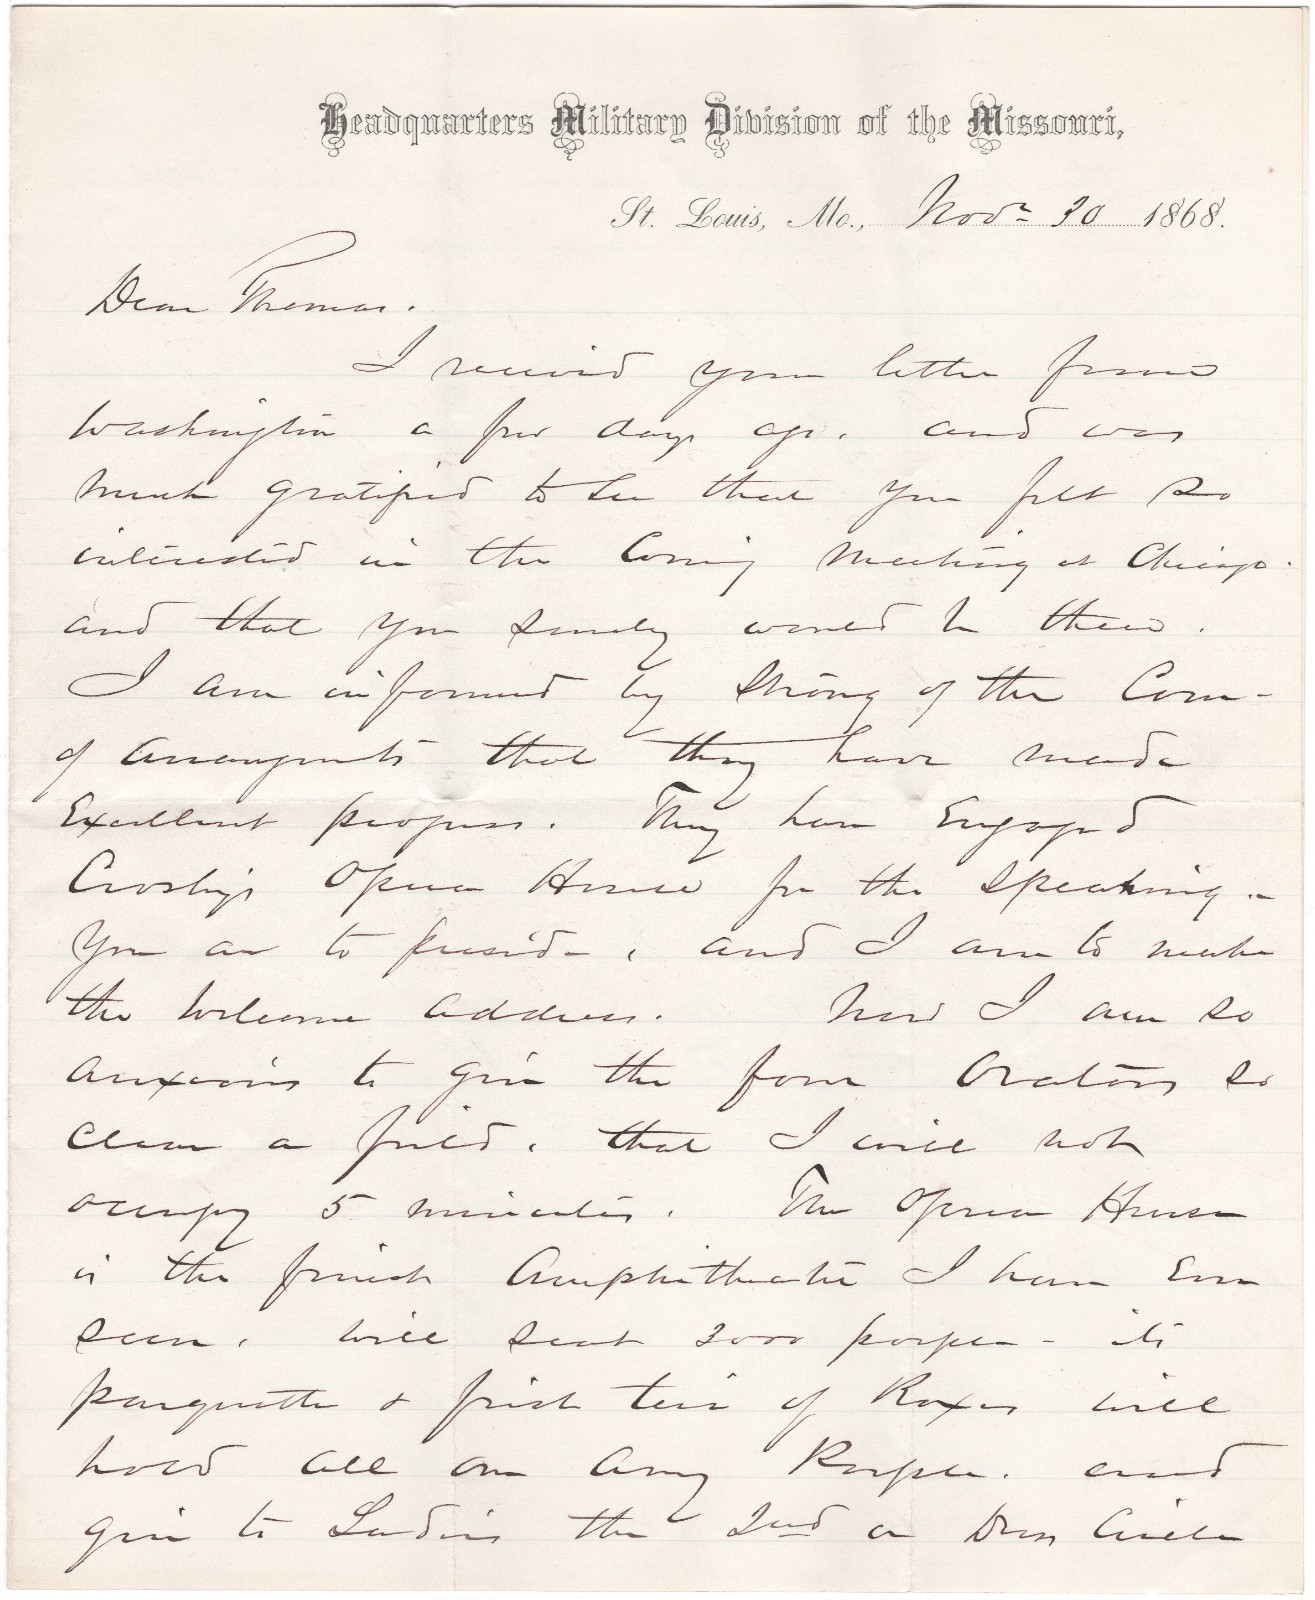 Headquarters Military Division of the Missouri,
St. Louis, Mo., Novr 30 1868.
Dear Thomas.
I received your letter from
Washington a few days ago. and was
much gratified to see that you felt so
interested in the Coming Meeting at Chicago.
and that you surely would be there.
I am informed by Strong of the Com-
of Arrangmts that they have made
Excellent progress. They have Engaged
Crosby's Opera House for the Speaking.-
You are to preside, and I am to make
the Welcome address. Now I am so
anxious to give the four Orators so
clear a field, that I will not
occupy 5 minutes. The Opera House
is the finest Amphitheatre I have Ever
seen, will seat 3000 people - its
parquette & first tier of Boxes will
hold all our Army People. and
give to Ladies the 2nd or Dress Circle